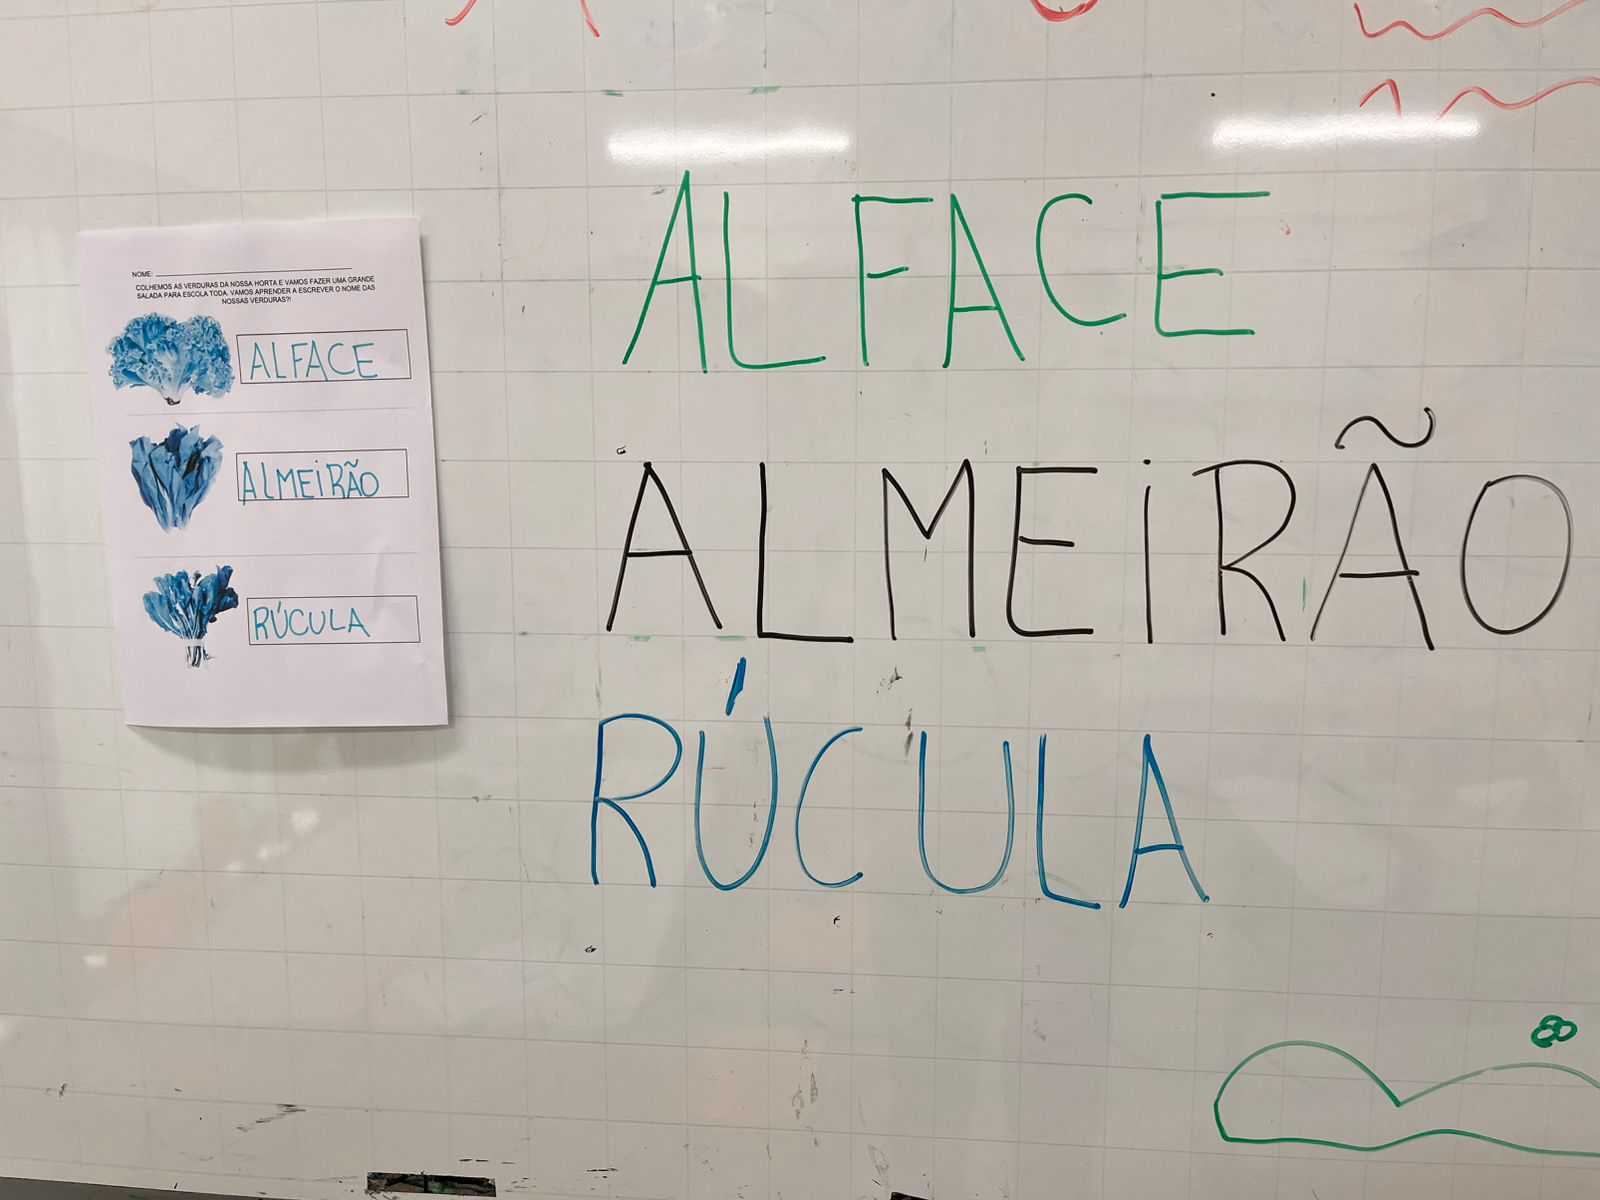 NOME:
COLHEMOS AS VERDURAS DA NOSSA HORTA E VAMOS FAZER UMA GRANDE
SALADA PARA ESCOLA TODA. VAMOS APRENDER A ESCREVER O NOME DAS
NOSSAS VERDURAS?!
ALFACE
ALMEiRÃO
RÚCULA
ALFACE
ALMEiRÃO
RÚCULA